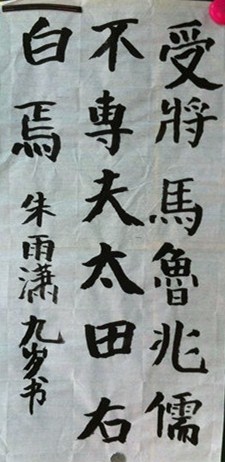 受將馬魯兆儒
不專夫太田右
白焉
朱雨潇九岁书